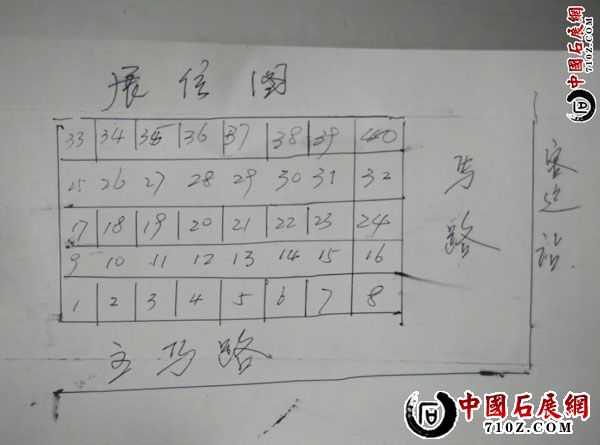 中國石展網
710Z.COM
展位图
33 34 35 36 37 38 39 40
25 26 27 28 29 30 31 32
17 18 19 20 21 22 23 24
9 10 11 12 13 14 15 16
1 2 3 4 5 6 7 8
马路
客运站
主马路
中國石展網
710Z.COM